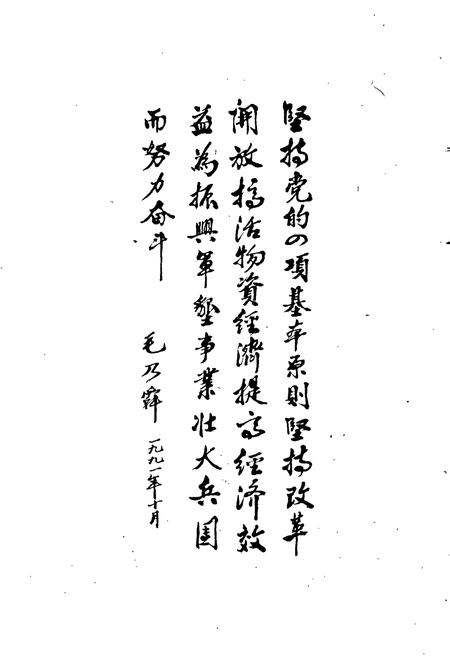 堅持党的四項基本原則堅持改革
開放搞活物資經濟提高經济效
益為振興軍墾事業壯大兵團
而努力奋斗
毛乃舜 一九九一年十月